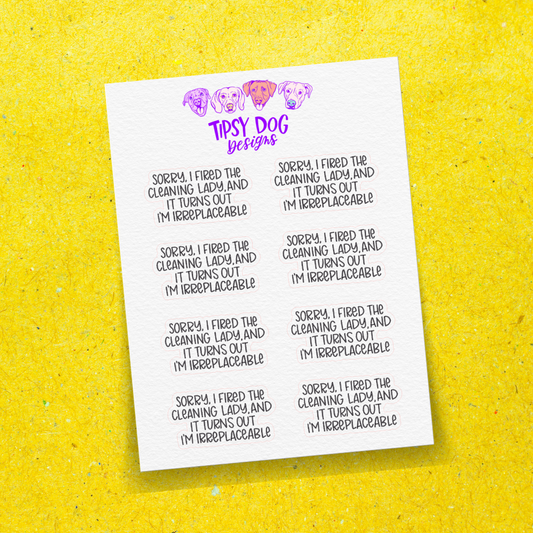 TIPSY DOG
Designs
SORRY, I FIRED THE
CLEANING LADY,AND
IT TURNS OUT
I'M IRREPLACEABLE
SORRY, I FIRED THE
CLEANING LADY,AND
IT TURNS OUT
I'M IRREPLACEABLE
SORRY, I FIRED THE
CLEANING LADY,AND
IT TURNS OUT
I'M IRREPLACEABLE
SORRY, I FIRED THE
CLEANING LADY,AND
IT TURNS OUT
I'M IRREPLACEABLE
SORRY, I FIRED THE
CLEANING LADY,AND
IT TURNS OUT
I'M IRREPLACEABLE
SORRY, I FIRED THE
CLEANING LADY,AND
IT TURNS OUT
I'M IRREPLACEABLE
SORRY, I FIRED THE
CLEANING LADY,AND
IT TURNS OUT
I'M IRREPLACEABLE
SORRY, I FIRED THE
CLEANING LADY,AND
IT TURNS OUT
I'M IRREPLACEABLE